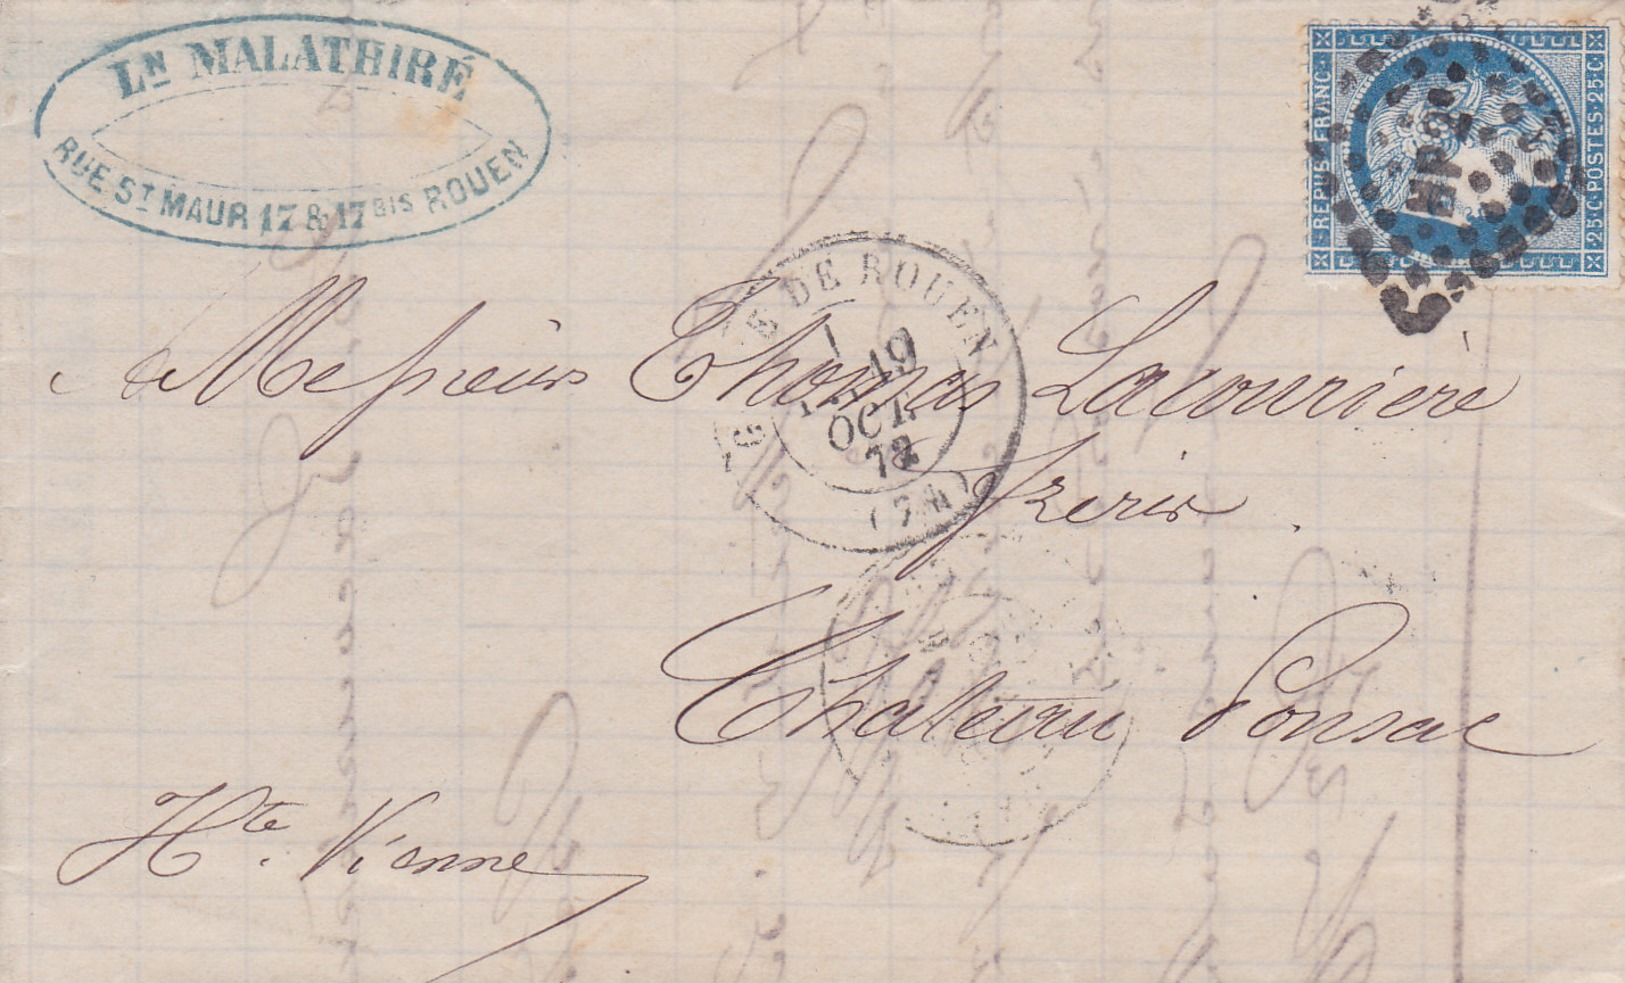 LN MALATHIRÉ
RUE ST MAUR 17 & 17 BIS ROUEN
REPUB·FRANC·
25·C·POSTES·25·C
E DE ROUEN
1
19
OCT.
72
Messieurs Thomas Lacourière
frères.
Chateau Ponsac
Hte. Vienne